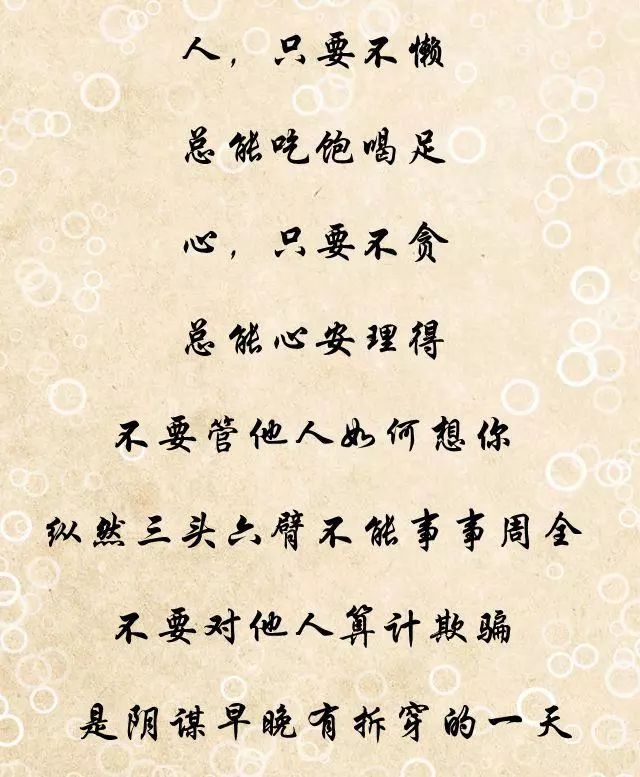 人，只要不懒
总能吃饱喝足
心，只要不贪
总能心安理得
不要管他人如何想你
纵然三头六臂不能事事周全
不要对他人算计欺骗
是阴谋早晚有拆穿的一天